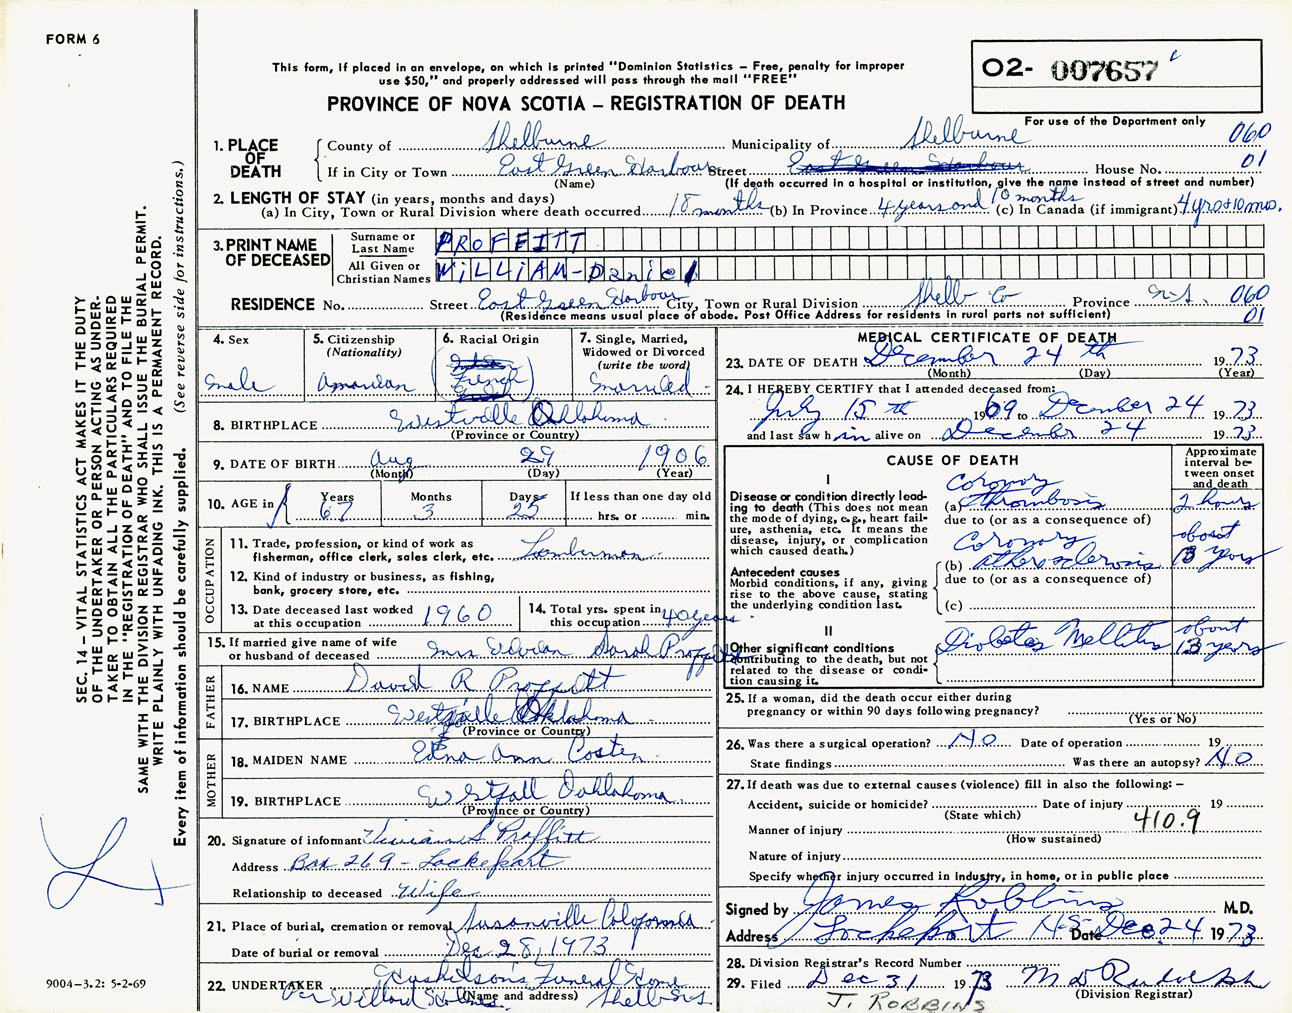 FORM 6
This form, if placed in an envelope, on which is printed "Dominion Statistics – Free, penalty for improper
use $50," and properly addressed will pass through the mail "FREE"
O2- 007657
PROVINCE OF NOVA SCOTIA – REGISTRATION OF DEATH
For use of the Department only
1. PLACE OF DEATH
County of Shelburne Municipality of Shelburne 060
If in City or Town East Green Harbour Street East Green Harbour House No. 01
(Name) (If death occurred in a hospital or institution, give the name instead of street and number)
2. LENGTH OF STAY (in years, months and days)
(a) In City, Town or Rural Division where death occurred 18 months (b) In Province 4 years and 10 months (c) In Canada (if immigrant) 4 yrs + 10 mos.
3. PRINT NAME OF DECEASED
Surname or Last Name PROFFITT
All Given or Christian Names WiLLiAM-Daniel
RESIDENCE No. Street East Green Harbour City, Town or Rural Division Shelb Co Province N.S. 060
(Residence means usual place of abode. Post Office Address for residents in rural parts not sufficient) 01
4. Sex
male
5. Citizenship
(Nationality)
American
6. Racial Origin
(French)
7. Single, Married,
Widowed or Divorced
(write the word)
married
8. BIRTHPLACE Westville Oklahoma
(Province or Country)
9. DATE OF BIRTH Aug 29 1906
(Month) (Day) (Year)
10. AGE in Years Months Days If less than one day old
67 3 25 hrs. or min.
OCCUPATION
11. Trade, profession, or kind of work as
fisherman, office clerk, sales clerk, etc. Lumberman
12. Kind of industry or business, as fishing,
bank, grocery store, etc.
13. Date deceased last worked
at this occupation 1960
14. Total yrs. spent in
this occupation 40 years
15. If married give name of wife
or husband of deceased Mrs Vivian Sarah Proffitt
FATHER
16. NAME David R Proffitt
17. BIRTHPLACE Westville Oklahoma
(Province or Country)
MOTHER
18. MAIDEN NAME Edna Ann Coster
19. BIRTHPLACE Westfall Oaklahoma
(Province or Country)
20. Signature of informant Vivian S Proffitt
Address Box 269 - Lockeport
Relationship to deceased Wife
21. Place of burial, cremation or removal Susanville California
Date of burial or removal Dec. 28, 1973
22. UNDERTAKER Funeral Home
Per Willard
(Name and address) Shelb N.S.
MEDICAL CERTIFICATE OF DEATH
23. DATE OF DEATH December 24 th 1973
(Month) (Day) (Year)
24. I HEREBY CERTIFY that I attended deceased from:
July 15 th 1969 to December 24 1973
and last saw him alive on December 24 1973
CAUSE OF DEATH
Approximate interval between onset and death
I
Disease or condition directly leading to death (This does not mean the mode of dying, e.g., heart failure, asthenia, etc. It means the disease, injury, or complication which caused death.)
(a) Coronary thrombosis 2 hours
due to (or as a consequence of)
Antecedent causes
Morbid conditions, if any, giving rise to the above cause, stating the underlying condition last.
(b) Coronary atherosclerosis about 13 years
due to (or as a consequence of)
(c)
II
Other significant conditions
contributing to the death, but not related to the disease or condition causing it.
Diabetes Mellitus about 13 years
25. If a woman, did the death occur either during
pregnancy or within 90 days following pregnancy?
(Yes or No)
26. Was there a surgical operation? No Date of operation 19
State findings Was there an autopsy? No
27. If death was due to external causes (violence) fill in also the following: –
Accident, suicide or homicide? Date of injury 19
(State which)
Manner of injury 410.9
(How sustained)
Nature of injury
Specify whether injury occurred in industry, in home, or in public place
Signed by James Robbins M.D.
Address Lockeport NS Date Dec. 24 1973
28. Division Registrar's Record Number
29. Filed Dec 31 1973 M D Rudolph
(Division Registrar)
J. ROBBINS
SEC. 14 – VITAL STATISTICS ACT MAKES IT THE DUTY
OF THE UNDERTAKER OR PERSON ACTING AS UNDER-
TAKER TO OBTAIN ALL THE PARTICULARS REQUIRED
IN THE "REGISTRATION OF DEATH" AND TO FILE THE
SAME WITH THE DIVISION REGISTRAR WHO SHALL ISSUE THE BURIAL PERMIT.
WRITE PLAINLY WITH UNFADING INK. THIS IS A PERMANENT RECORD.
Every item of information should be carefully supplied. (See reverse side for instructions.)
9004–3.2: 5-2-69